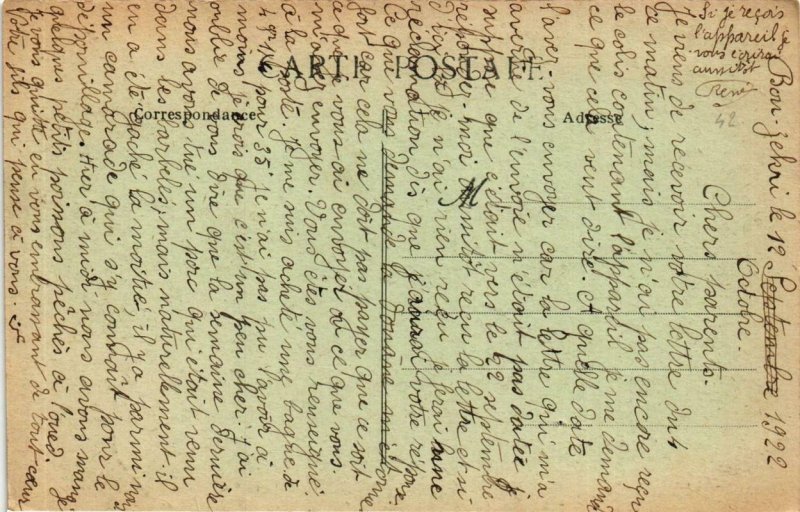 CARTE POSTALE
Correspondance
Adresse
M
42
Bou-Jehri le 12 Septembre 1922
Octobre.
Chers parents.
Je viens de recevoir votre lettre du 4
ce matin; mais je n'ai pas encore reçu
le colis contenant l'appareil je me demande
ce que cela veut dire. et quelle date
l'avez-vous envoyer car la lettre qui m'a
averti de l'envoie n'était pas datée je
suppose que c'était vers le 12 septembre
répondez-moi aussitôt reçu la lettre et si
je n'ai rien reçu je ferai une
réclamation dis que j'aurai votre réponse
Ce que vous
fort car cela ne doit pas payer que ce soit
ce que vous ai envoyé ou ce que vous
m'avez envoyer. Vous êtes vous renseigné
à la poste. Je me suis acheté une bague à
pour 35 je n'ai pas pu l'avoir à
moins je crois que c'est un peu cher. j'ai
oublié de vous dire que la semaine dernière
nous avons tué un porc qui était venu
dans les barbelés, mais naturellement il
en a été taché la moitié, il y a parmi nous
un camarade qui s'y connait pour le
dépouillage. Hier à midi nous avons mangé
quelques petits poissons pêchés à l'oued. Je
vous quitte en vous embrassant de tout cœur
Votre fils qui pense à vous.
Si je reçois
l'appareil je
vous écrirai
aussitôt
René